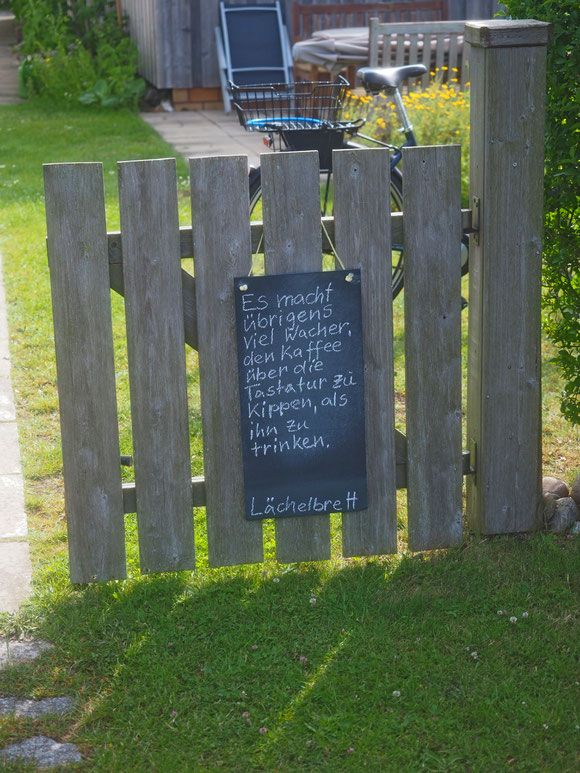 Es macht
übrigens
viel wacher,
den Kaffee
über die
Tastatur zu
kippen, als
ihn zu
trinken.
Lächelbrett